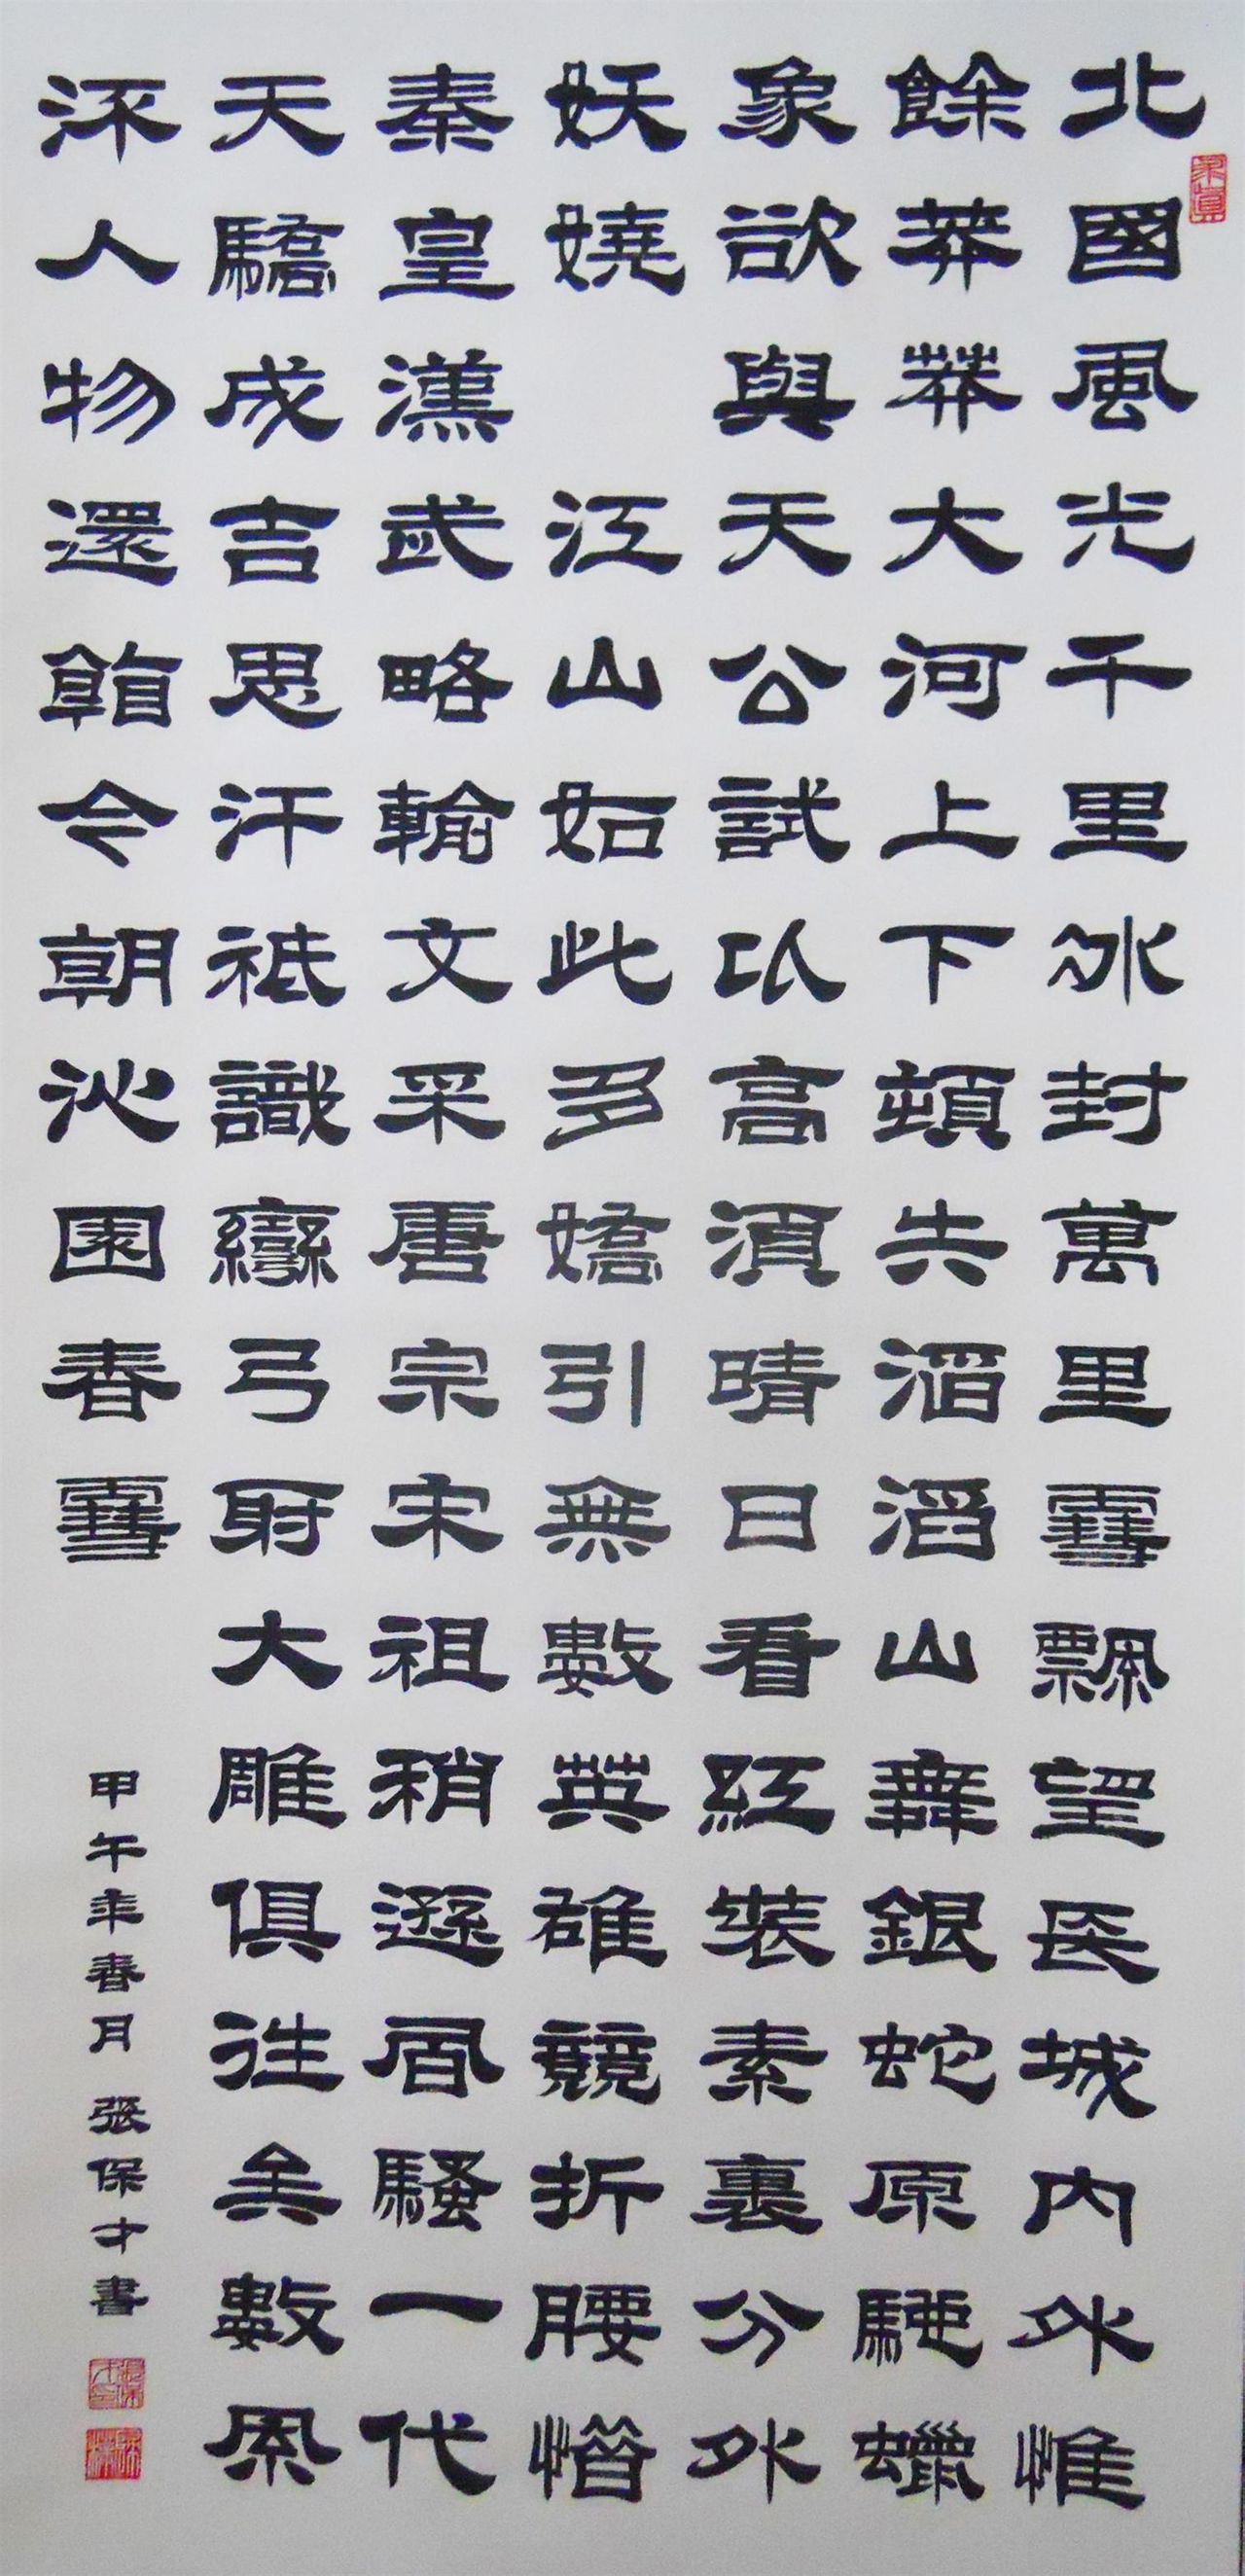 北國風光千里冰封萬里雪飄望長城內外惟
餘莽莽大河上下頓失滔滔山舞銀蛇原馳蠟
象欲與天公試比高須晴日看紅裝素裹分外
妖嬈 江山如此多嬌引無數英雄競折腰惜
秦皇漢武略輸文采唐宗宋祖稍遜風騷一代
天驕成吉思汗祗識彎弓射大雕俱往矣數風
流人物還看今朝沁園春雪
甲午年春月 張保才書